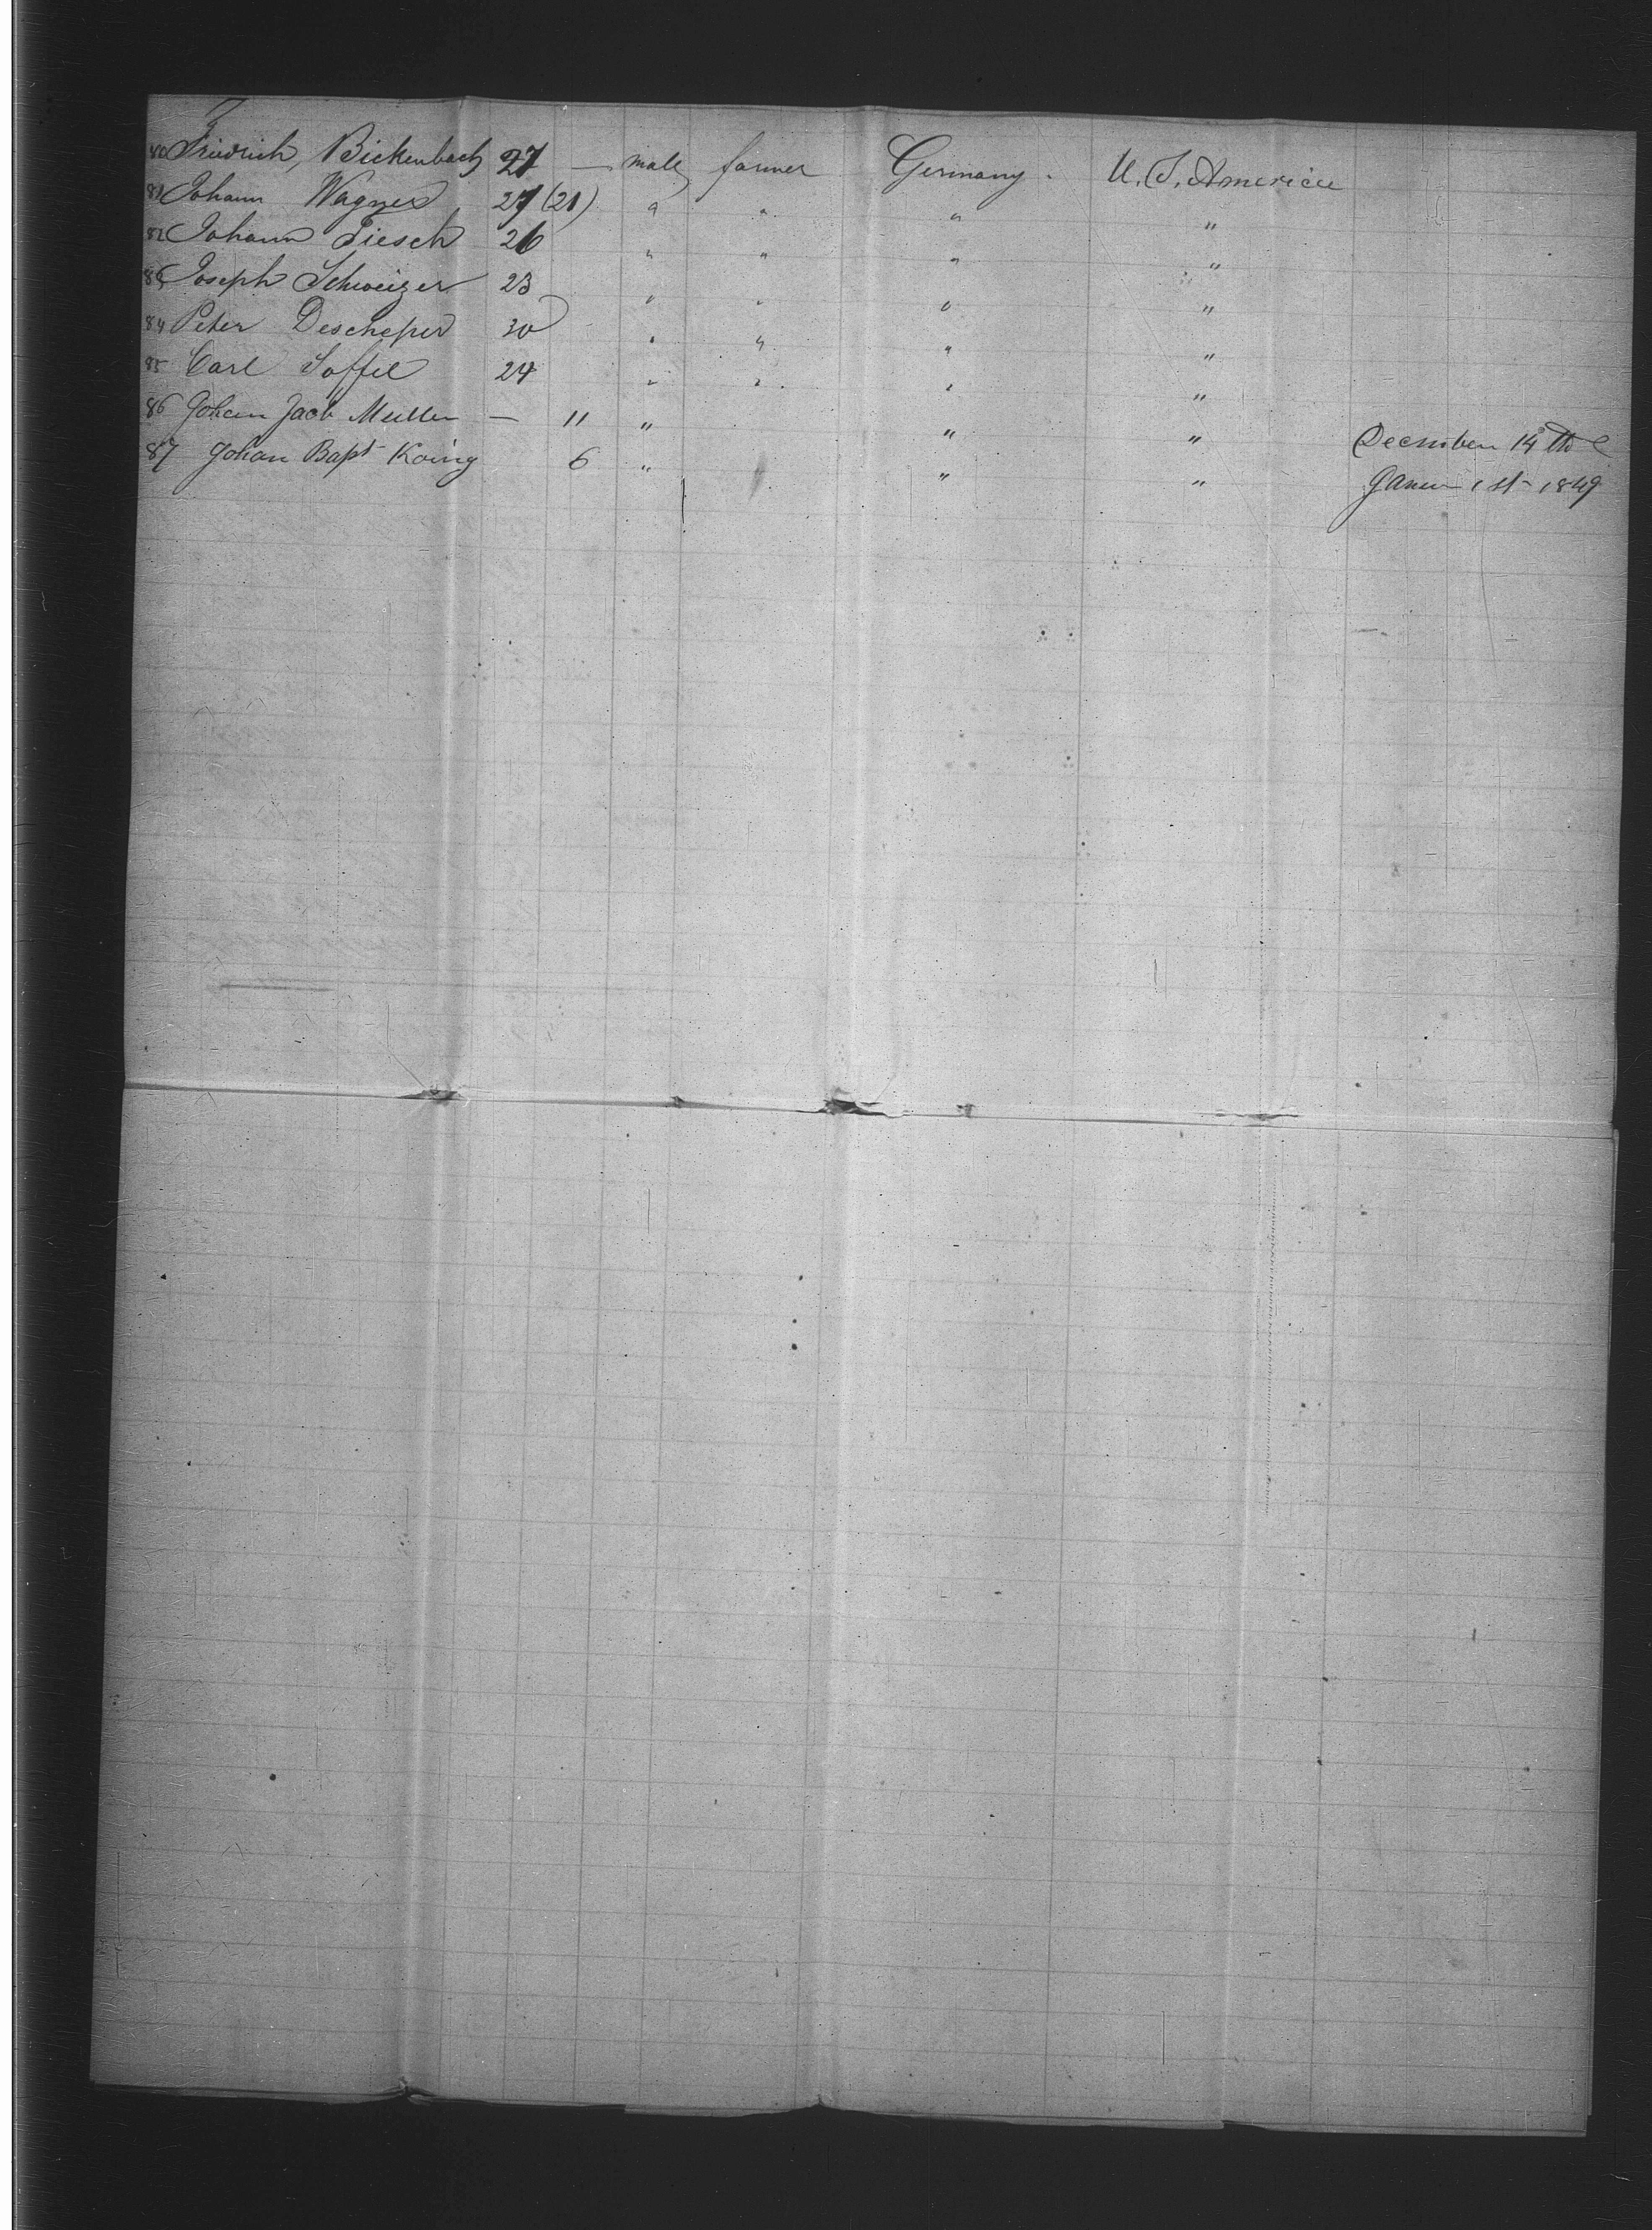 80 Friedrich, Bickenbach 27 — male farmer Germany. U.S. America
81 Johann Wagner 27 (21) " " " "
82 Johann Piesch 26 " " " "
83 Joseph Schweizer 23 " " " "
84 Peter Descheper 30 " " " "
85 Carl Soffel 24 " " " "
86 Johan Jacob Muller — 11 " " " December 14th
87 Johan Bapt Koing 6 " " " 1st 1849